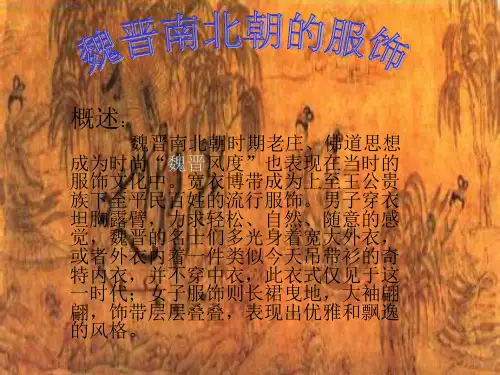 魏晋南北朝的服饰
概述：
魏晋南北朝时期老庄、佛道思想
成为时尚“魏晋风度”也表现在当时的
服饰文化中。宽衣博带成为上至王公贵
族下至平民百姓的流行服饰。男子穿衣
坦胸露臂，力求轻松、自然、随意的感
觉，魏晋的名士们多光身着宽大外衣，
或者外衣内着一件类似今天吊带衫的奇
特内衣，并不穿中衣，此衣式仅见于这
一时代；女子服饰则长裙曳地，大袖翩
翩，饰带层层叠叠，表现出优雅和飘逸
的风格。